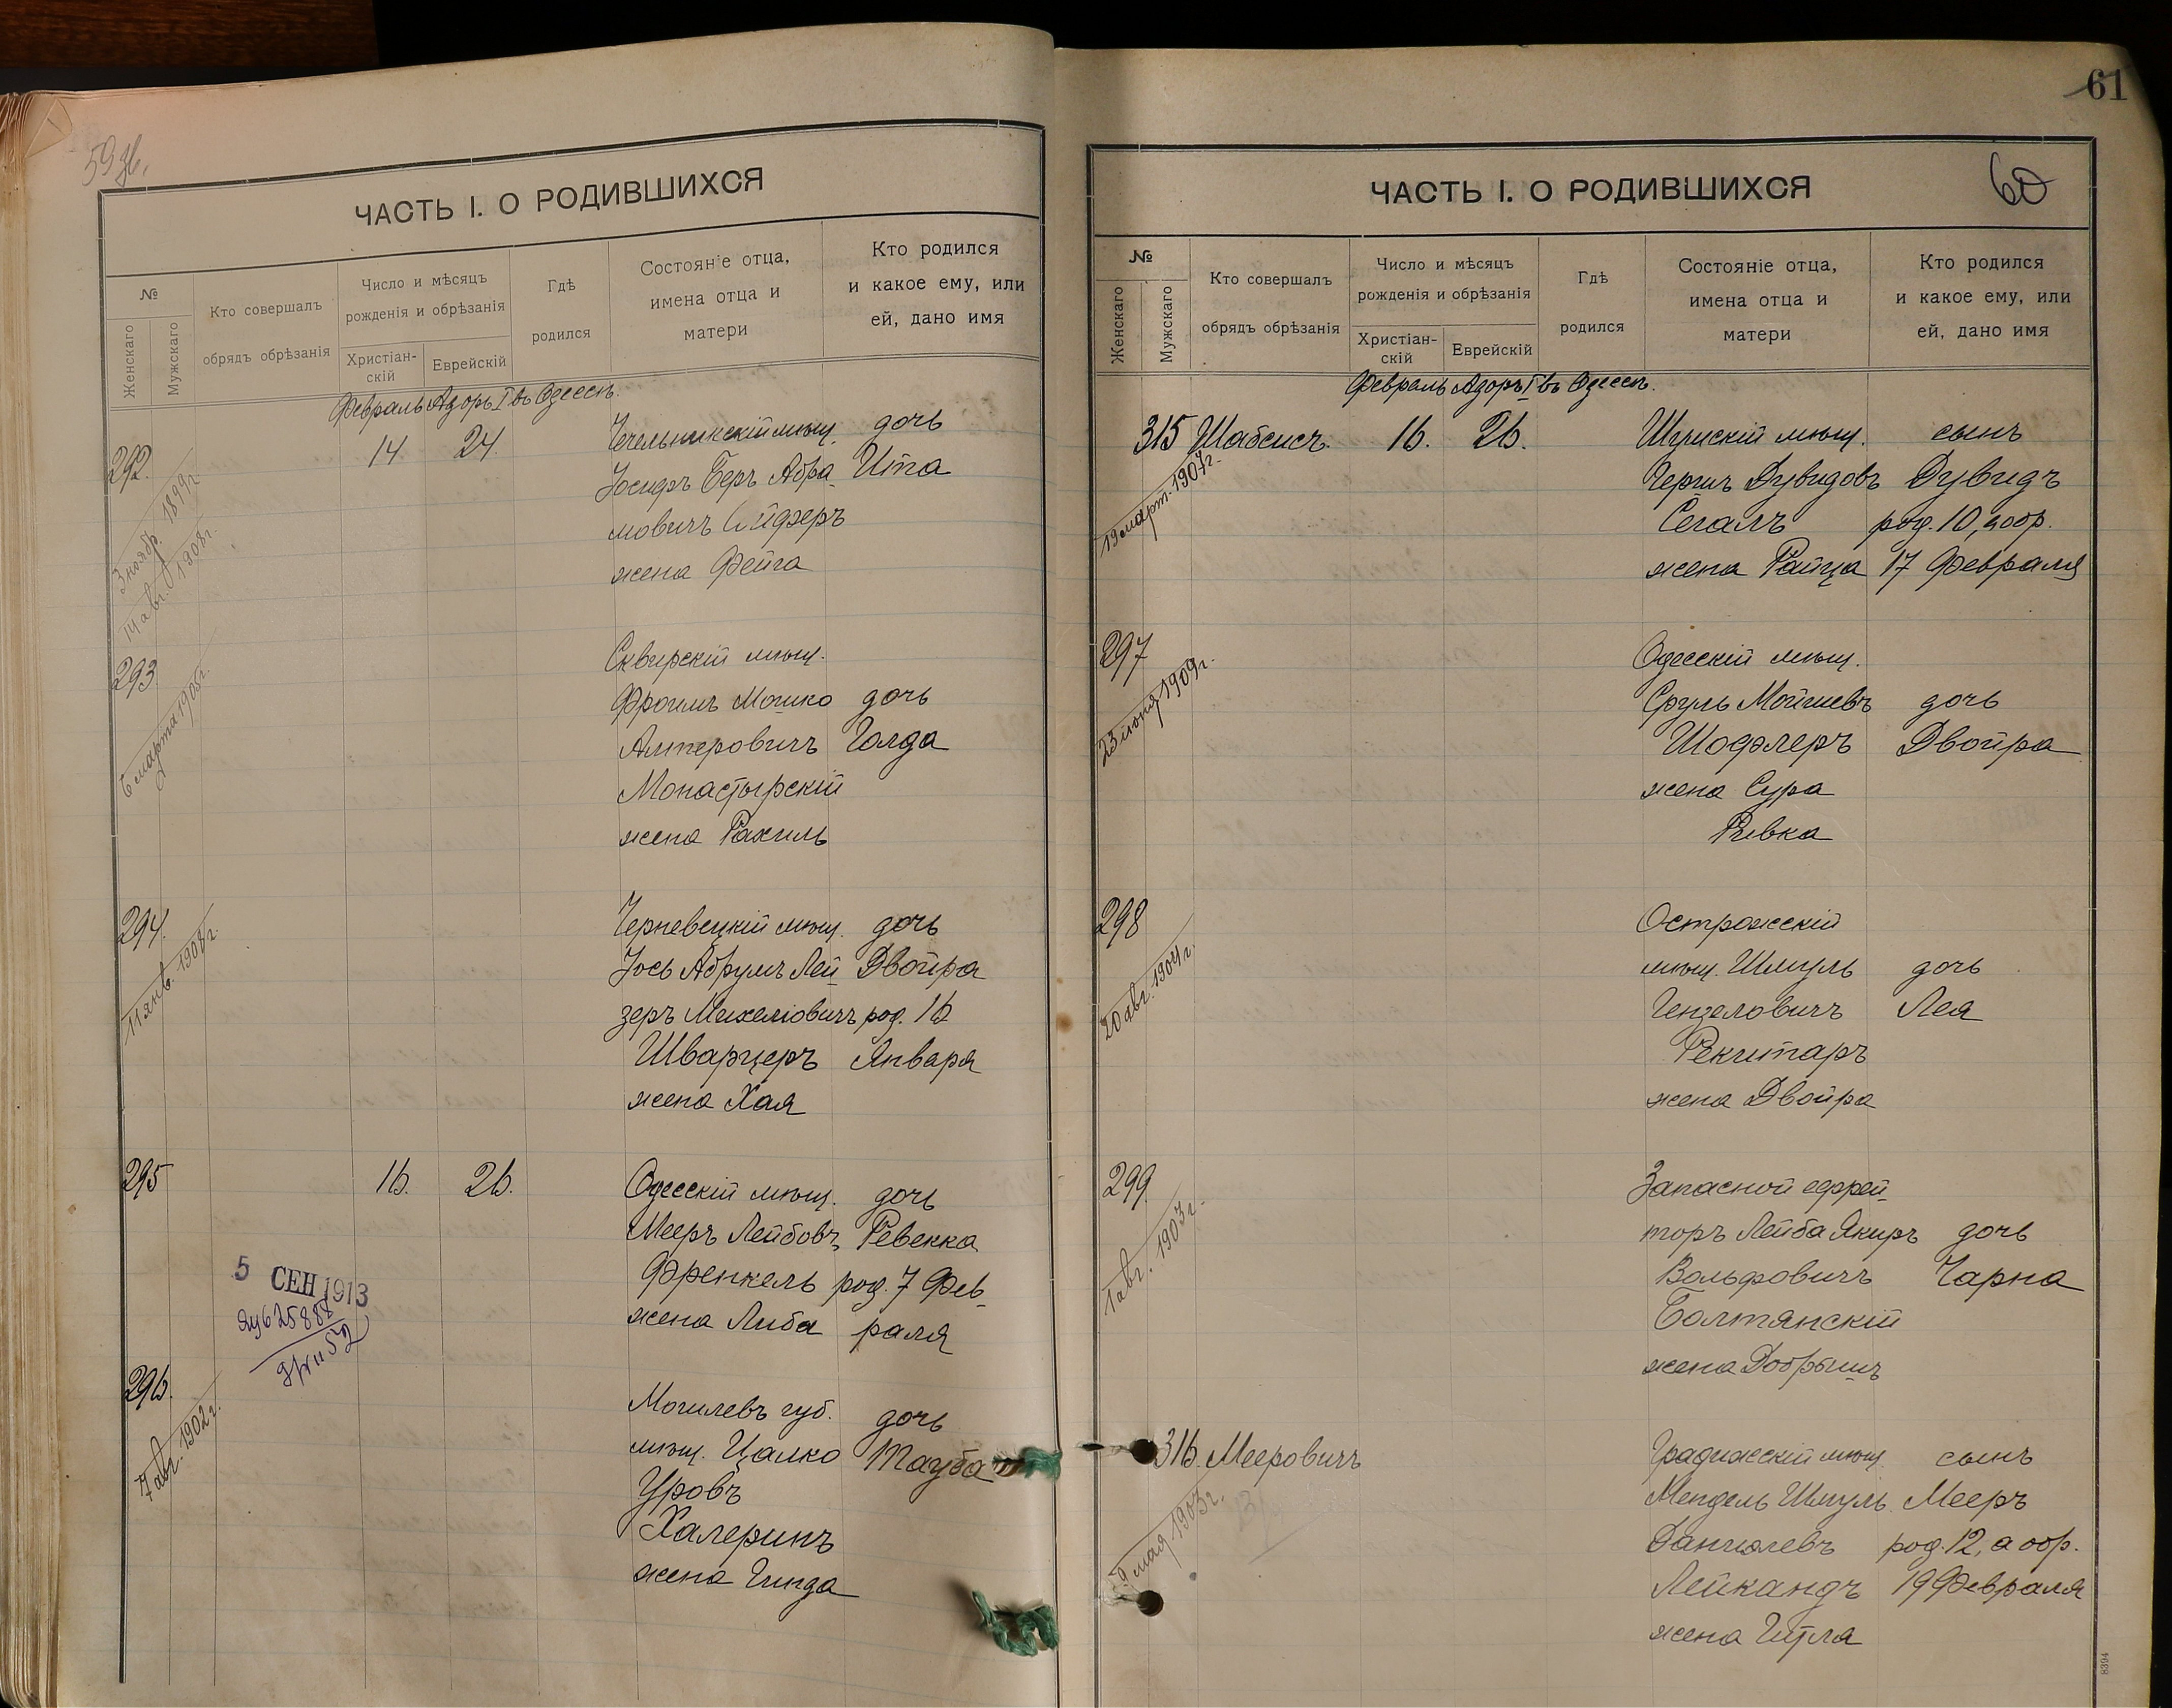 59 об.
ЧАСТЬ I. О РОДИВШИХСЯ
№
Женскаго
Мужскаго
Кто совершалъ
обрядъ обрѣзанія
Число и мѣсяцъ
рожденія и обрѣзанія
Христіан-
скій
Еврейскій
Гдѣ
родился
Состояніе отца,
имена отца и
матери
Кто родился
и какое ему, или
ей, дано имя
Февраль Адоръ I въ Одессѣ.
292. 14. 24. Чечельникскій мѣщ. дочь
Іосифъ Беръ Абра Ита
мовичъ
жена Фейга
3 ноябр. 1899 г.
14 авг. 1908 г.
293 Сквирскій мѣщ.
Фроимъ Мошко дочь
Алтеровичъ Голда
Монастырскій
жена Рахиль
6 марта 1905 г.
294. Черневецкій мѣщ. дочь
Іось Абрумъ Лей Двойра
зеръ Михелювичъ род. 16
Шварцеръ Января
жена Хая
11 янв. 1908 г.
295 16. 26. Одесскій мѣщ. дочь
Мееръ Лейбовъ Ревекка
Френкель род. 7 Фев
жена Либа раля
5 СЕН 1913
625888
52
296. Могилевъ губ. дочь
мѣщ. Цалко Тауба
Уровъ
Халеринъ
жена Гинда
7 авг. 1902 г.
61
60
ЧАСТЬ I. О РОДИВШИХСЯ
№
Женскаго
Мужскаго
Кто совершалъ
обрядъ обрѣзанія
Число и мѣсяцъ
рожденія и обрѣзанія
Христіан-
скій
Еврейскій
Гдѣ
родился
Состояніе отца,
имена отца и
матери
Кто родился
и какое ему, или
ей, дано имя
Февраль Адоръ I въ Одессѣ.
315 Шабсисъ. 16. 26. Шумскій мѣщ. сынъ
Гершъ Дувидовъ Дувидъ
Сегалъ род. 10, а обр.
жена Райца 17 Февраля
19 март. 1907 г.
297 Одесскій мѣщ.
Сруль Мойшевъ дочь
Шофлеръ Двойра
жена Сура
Ривка
23 іюня 1909 г.
298 Острожскій
мѣщ. Шмуль дочь
Гензеловичъ Лея
Рекитаръ
жена Двойра
20 авг. 1904 г.
299 Запасной ефрей
торъ Лейба Якиръ дочь
Вольфовичъ Чарна
Балтянскій
жена Добрышъ
1 авг. 1903 г.
316. Мееровичъ Градижскій мѣщ сынъ
Мендель Шмуль Мееръ
Данилевъ род. 12, а обр.
Лейкандъ 19 Февраля
жена Гитля
9 мая 1903 г.
8394